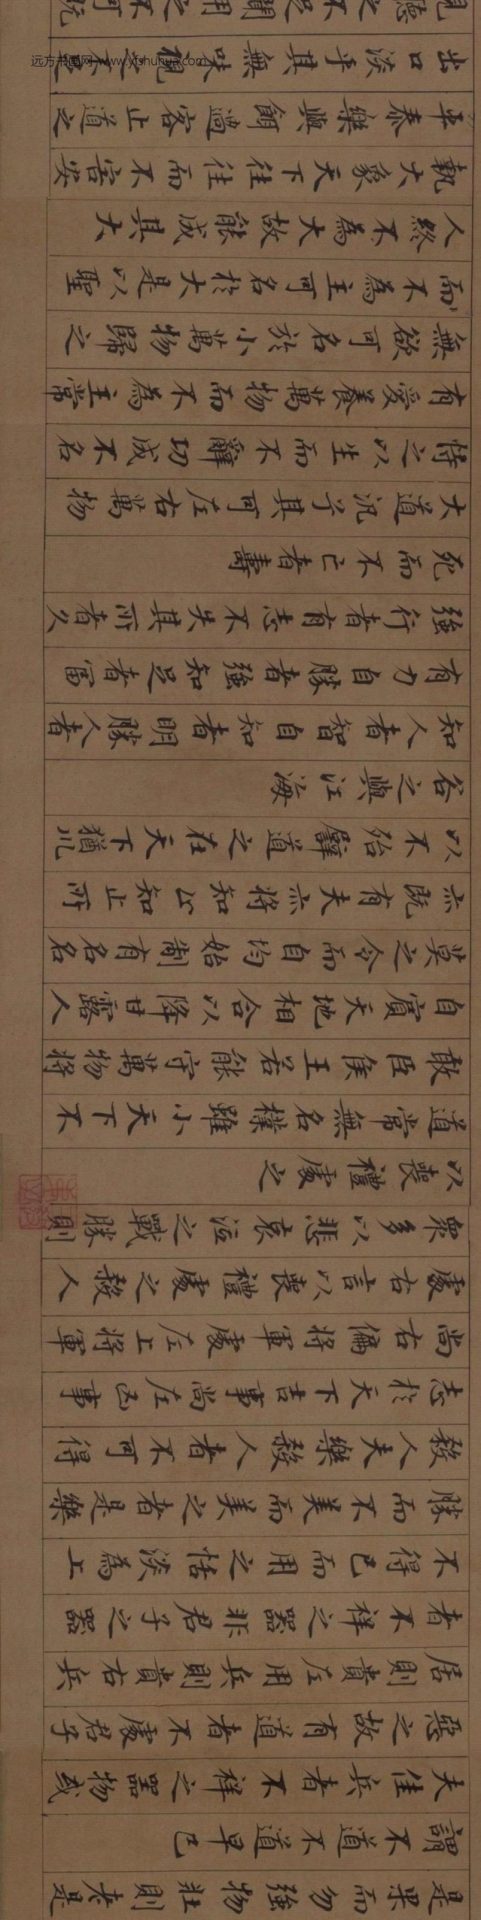 是果而勿強物壯則老是
謂不道不道早已
夫佳兵者不祥之器物或
惡之故有道者不處君子
居則貴左用兵則貴右兵
者不祥之器非君子之器
不得已而用之恬淡為上
勝而不美而美之者是樂
殺人夫樂殺人者不可得
志於天下吉事尚左凶事
尚右偏將軍處左上將軍
處右言以喪禮處之殺人
衆多以悲哀泣之戰勝則
以喪禮處之
道常無名樸雖小天下不
敢臣侯王若能守萬物將
自賓天地相合以降甘露人
莫之令而自均始制有名名
亦既有夫亦將知止知止所
以不殆譬道之在天下猶川
谷之與江海
知人者智自知者明勝人者
有力自勝者強知足者富
強行者有志不失其所者久
死而不亡者壽
大道汎兮其可左右萬物
恃之以生而不辭功成不名
有愛養萬物而不為主常
無欲可名於小萬物歸之
而不為主可名於大是以聖
人終不為大故能成其大
執大象天下往往而不害安
平泰樂與餌過客止道之
出口淡乎其無味視之不足
見聽之不足聞用之不可既
远方书画网 www.yfshuhua.com